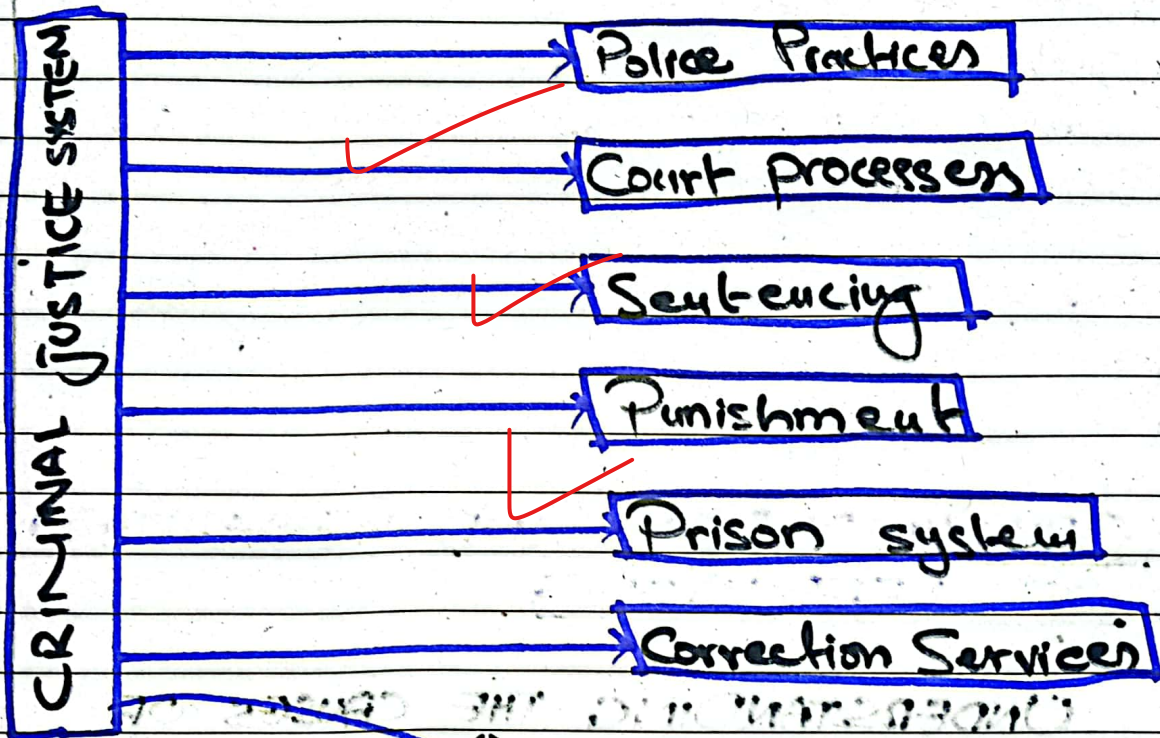 CRIMINAL JUSTICE SYSTEM
Police Practices
Court processess
Sentencing
Punishment
Prison system
Correction Services